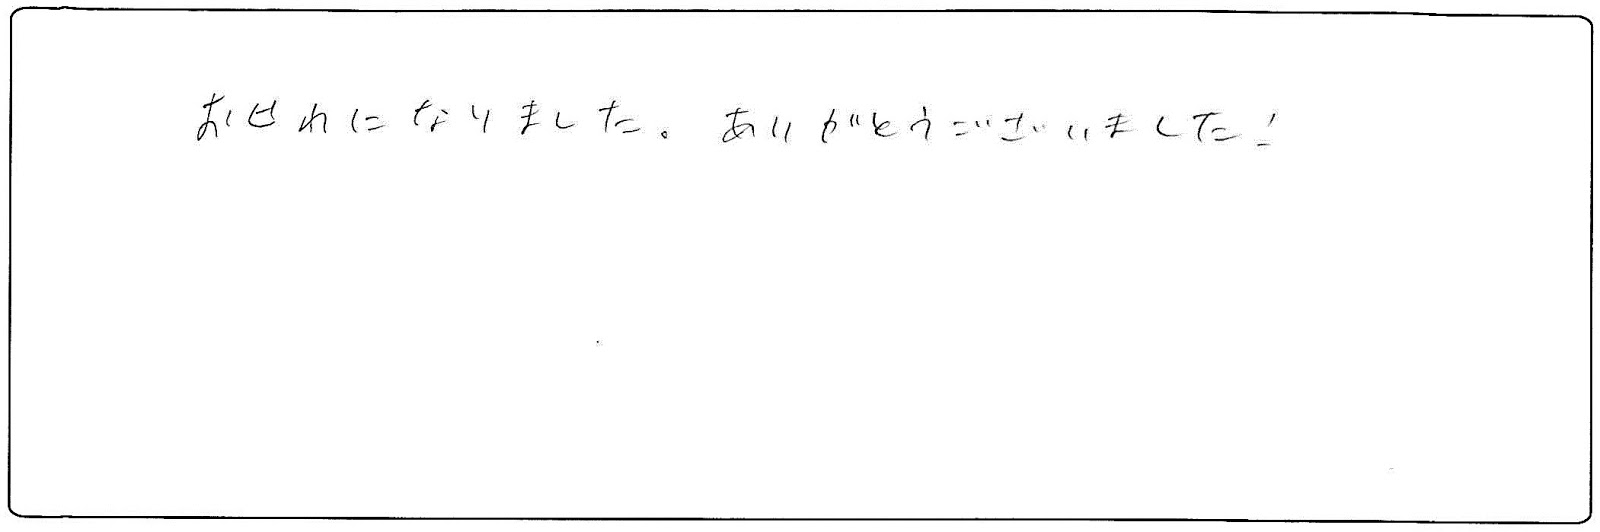 おせわになりました。ありがとうございました!